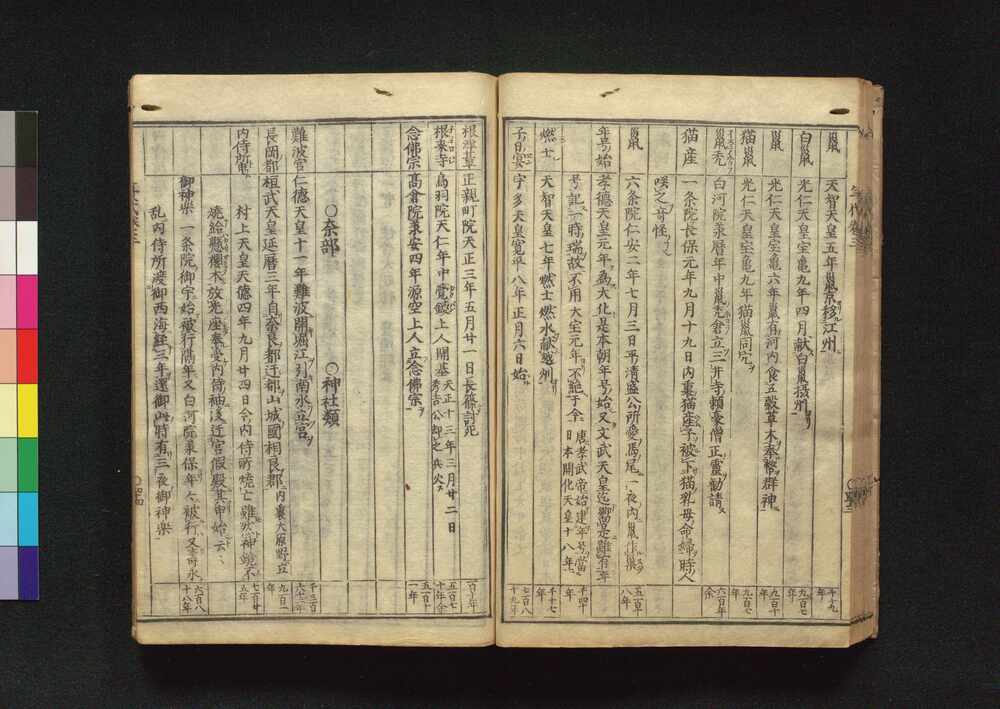 鼠 天智天皇五年鼠京移江州 千十九年
白鼠 光仁天皇宝亀九年四月献白鼠摂州 九百七年
鼠 光仁天皇宝亀六年鼠有河内食五穀草木奉幣群神 九百十年
猫鼠 光仁天皇宝亀九年猫鼠同穴 九百七年
鼠禿 白河院承暦年中鼠禿倉立三井寺頼豪僧正霊勧請 六百年余
猫産 一条院長保元年九月十九日内裏猫産子被下猫乳母命婦時人
咲之奇怪
鼠 六条院仁安二年七月三日平清盛公所愛馬尾一夜内鼠作巣 五百十八年
年号始 孝徳天皇元年為大化是本朝年号始又文武天皇迄
号記一時瑞故不用大宝元年不絶于今 唐孝武帝始建年号当日本開化天皇十八年 千四十年
燃土 天智天皇七年燃土燃水献越州 千十七年
子日宴 宇多天皇寛平八年正月六日始 七百八十九年
根津 正親町院天正三年五月廿一日長篠討死 百十年
根来寺 鳥羽院天仁年中覚鑁上人開基 天正十三年三月廿二日秀吉公御之兵火 五百七十年余
念佛宗 高倉院承安四年源空上人立念佛宗 五百十一年
○奈部 ○神社類
難波宮 仁徳天皇十一年難波開堀江引南水立宮 千三百六十二年
長岡都 桓武天皇延暦三年自奈良都迁都山城國相良郡 内裏大原野立 九百一年
内侍所 村上天皇天徳四年九月廿四日今内侍所焼亡雖然神鏡不 七百廿五年
焼給懸櫻木放光座奉受内侍袖後迁宮假殿其申始云々
御神楽 一条院御宇始被行隔年又白河院承保年々被行又壽永 六百八十八年
乱内侍所渡御西海経三年還御時有三夜御神楽